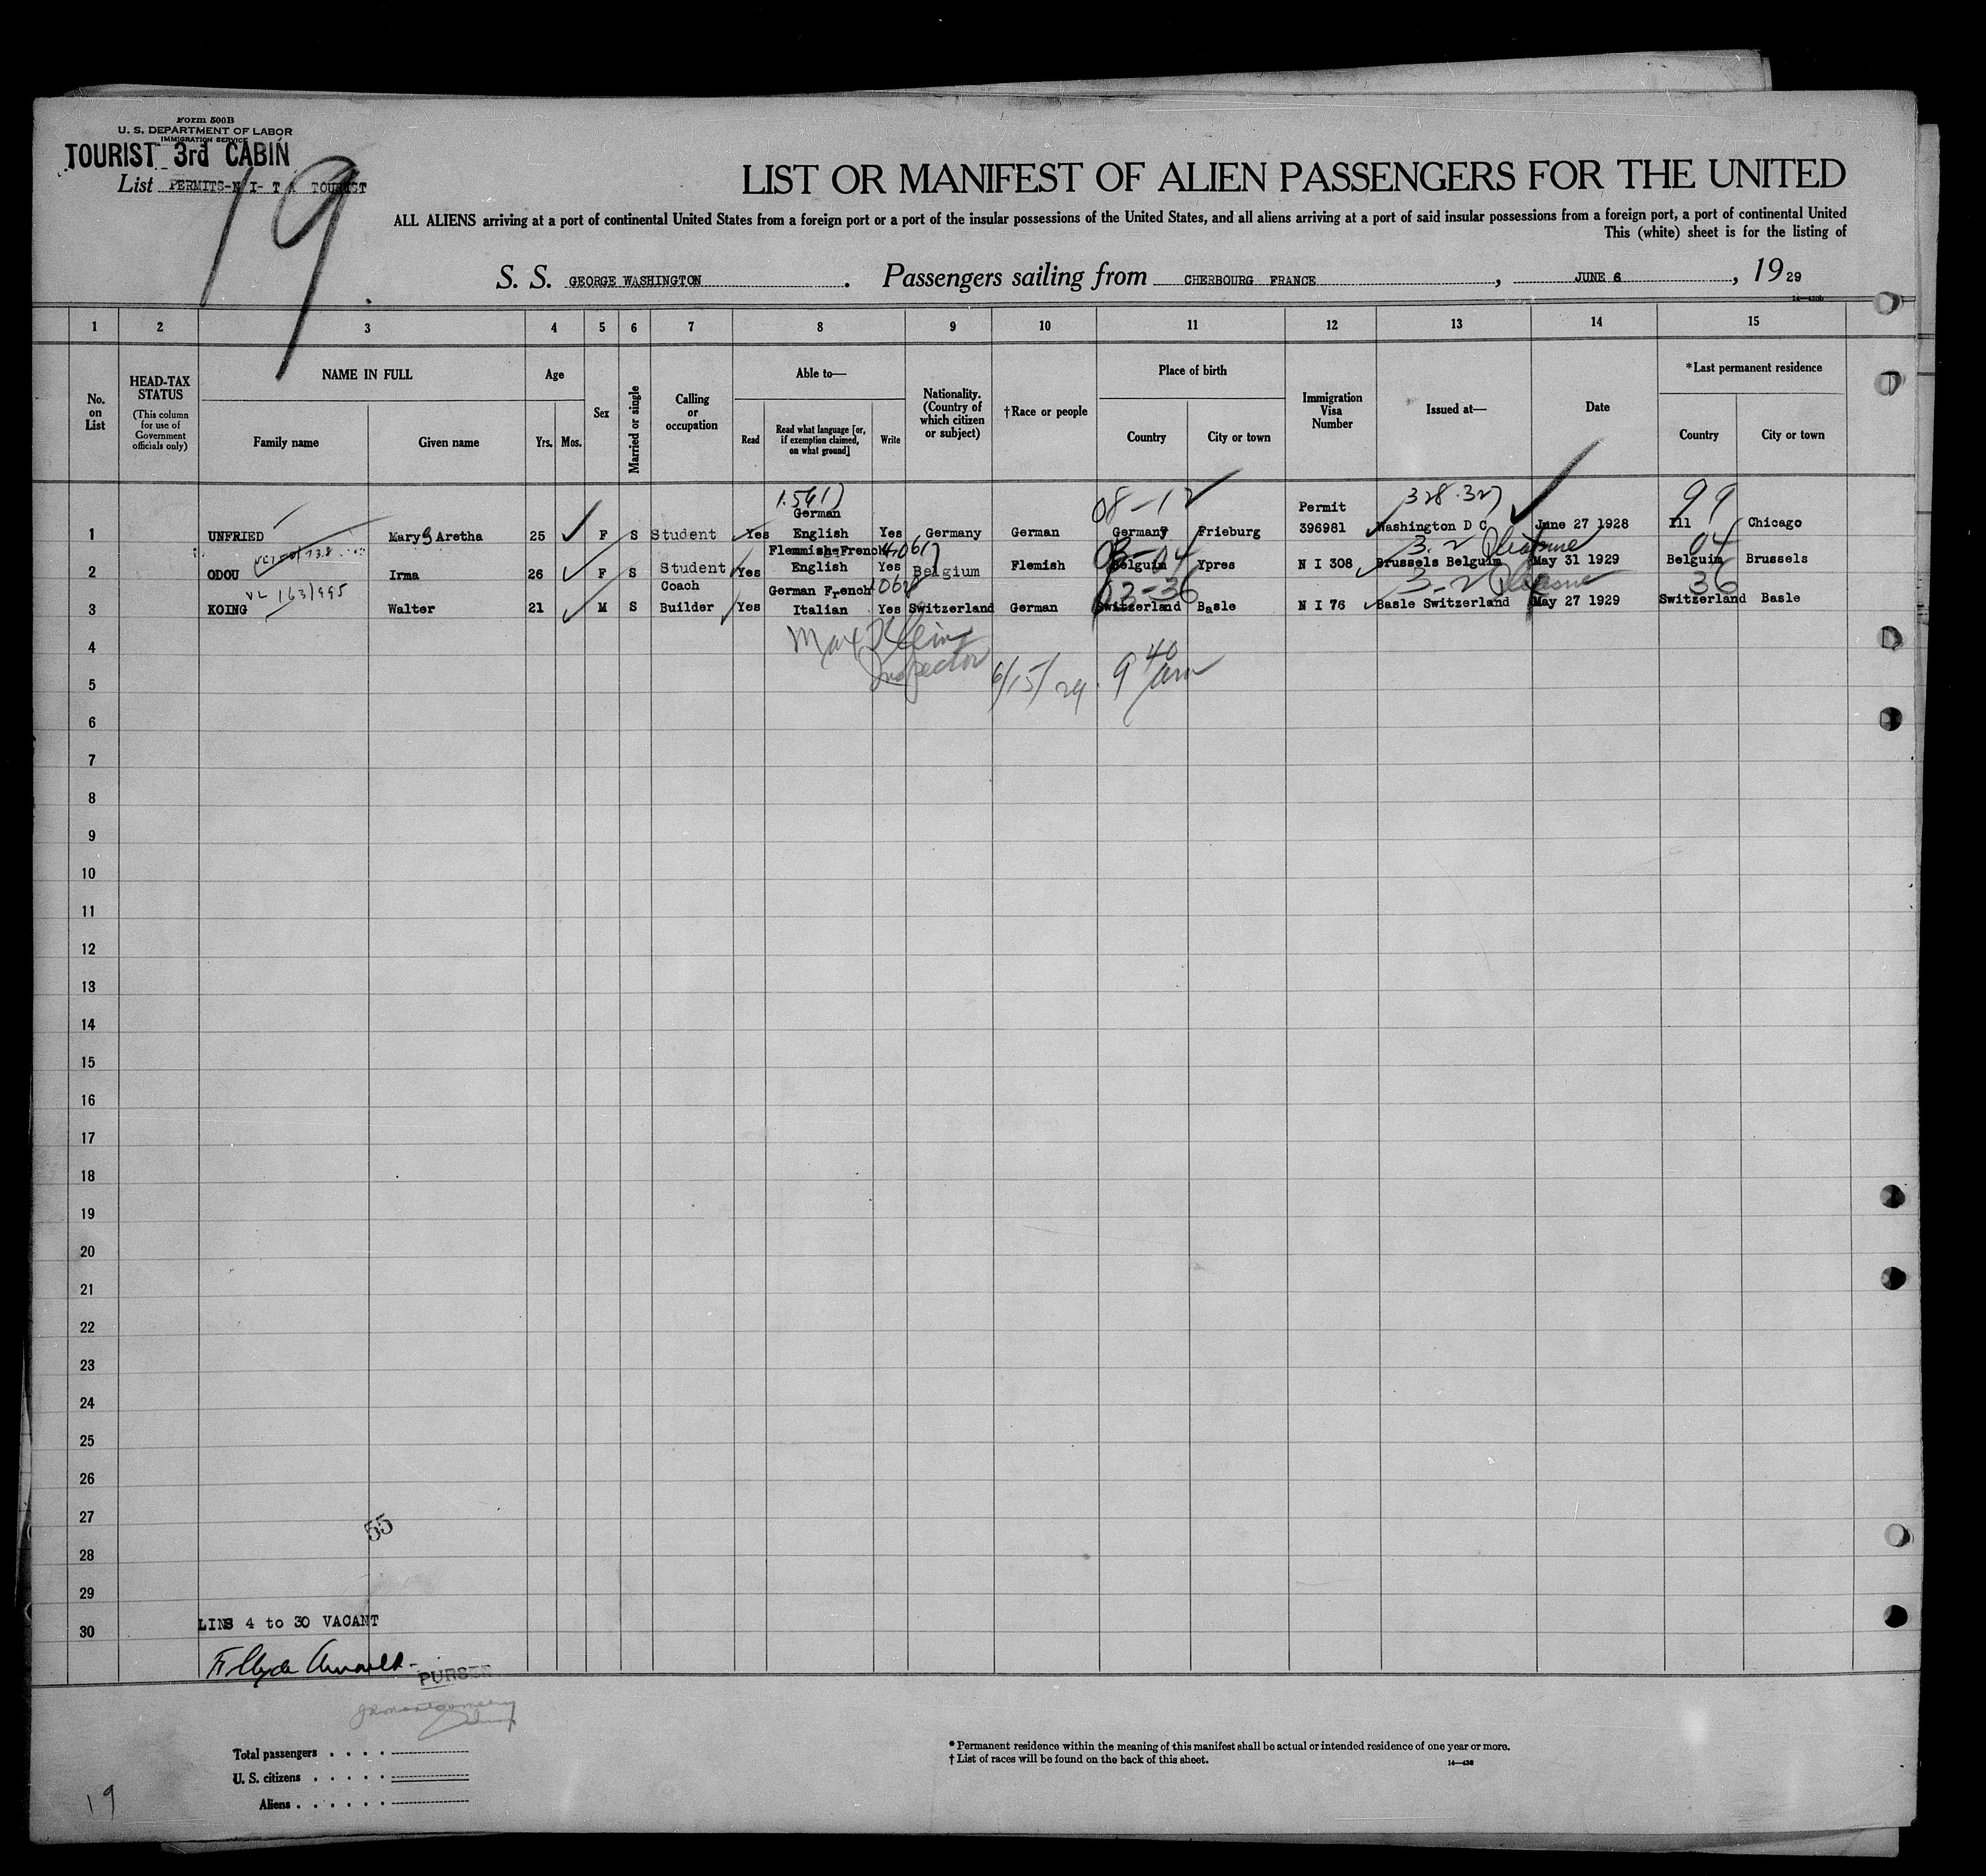 Form 500B
U. S. DEPARTMENT OF LABOR
IMMIGRATION SERVICE
TOURIST 3rd CABIN
List PERMITS-N I- T A TOURIST
19
LIST OR MANIFEST OF ALIEN PASSENGERS FOR THE UNITED
ALL ALIENS arriving at a port of continental United States from a foreign port or a port of the insular possessions of the United States, and all aliens arriving at a port of said insular possessions from a foreign port, a port of continental United
This (white) sheet is for the listing of
S. S. GEORGE WASHINGTON. Passengers sailing from CHERBOURG FRANCE, JUNE 6, 1929
1 2 3 4 5 6 7 8 9 10 11 12 13 14 15
No. on List
HEAD-TAX STATUS
(This column for use of Government officials only)
NAME IN FULL
Family name Given name
Age
Yrs. Mos.
Sex
Married or single
Calling or occupation
Able to—
Read
Read what language [or, if exemption claimed, on what ground]
Write
Nationality. (Country of which citizen or subject)
†Race or people
Place of birth
Country City or town
Immigration Visa Number
Issued at—
Date
*Last permanent residence
Country City or town
08-12 328.327 99
German Permit
1 UNFRIED Mary G Aretha 25 F S Student Yes English Yes Germany German Germany Frieburg 396981 Washington D C June 27 1928 Ill Chicago
Flemmish-French 3-2 Pleasure 04
2 ODOU Irma 26 F S Student Yes English Yes Belgium Flemish Belguim Ypres N I 308 Brussels Belguim May 31 1929 Belguim Brussels
VL 163/995 Coach German French 3-2 Pleasure 36
3 KOING Walter 21 M S Builder Yes Italian Yes Switzerland German Switzerland Basle N I 76 Basle Switzerland May 27 1929 Switzerland Basle
4 Max Klein
5 Inspector 6/15/29. 9 40 am
6
7
8
9
10
11
12
13
14
15
16
17
18
19
20
21
22
23
24
25
26
27
55
28
29
LINS 4 to 30 VACANT
30
PURSER
Total passengers . . . .
U. S. citizens . . . . .
Aliens . . . . . .
* Permanent residence within the meaning of this manifest shall be actual or intended residence of one year or more.
† List of races will be found on the back of this sheet.
19